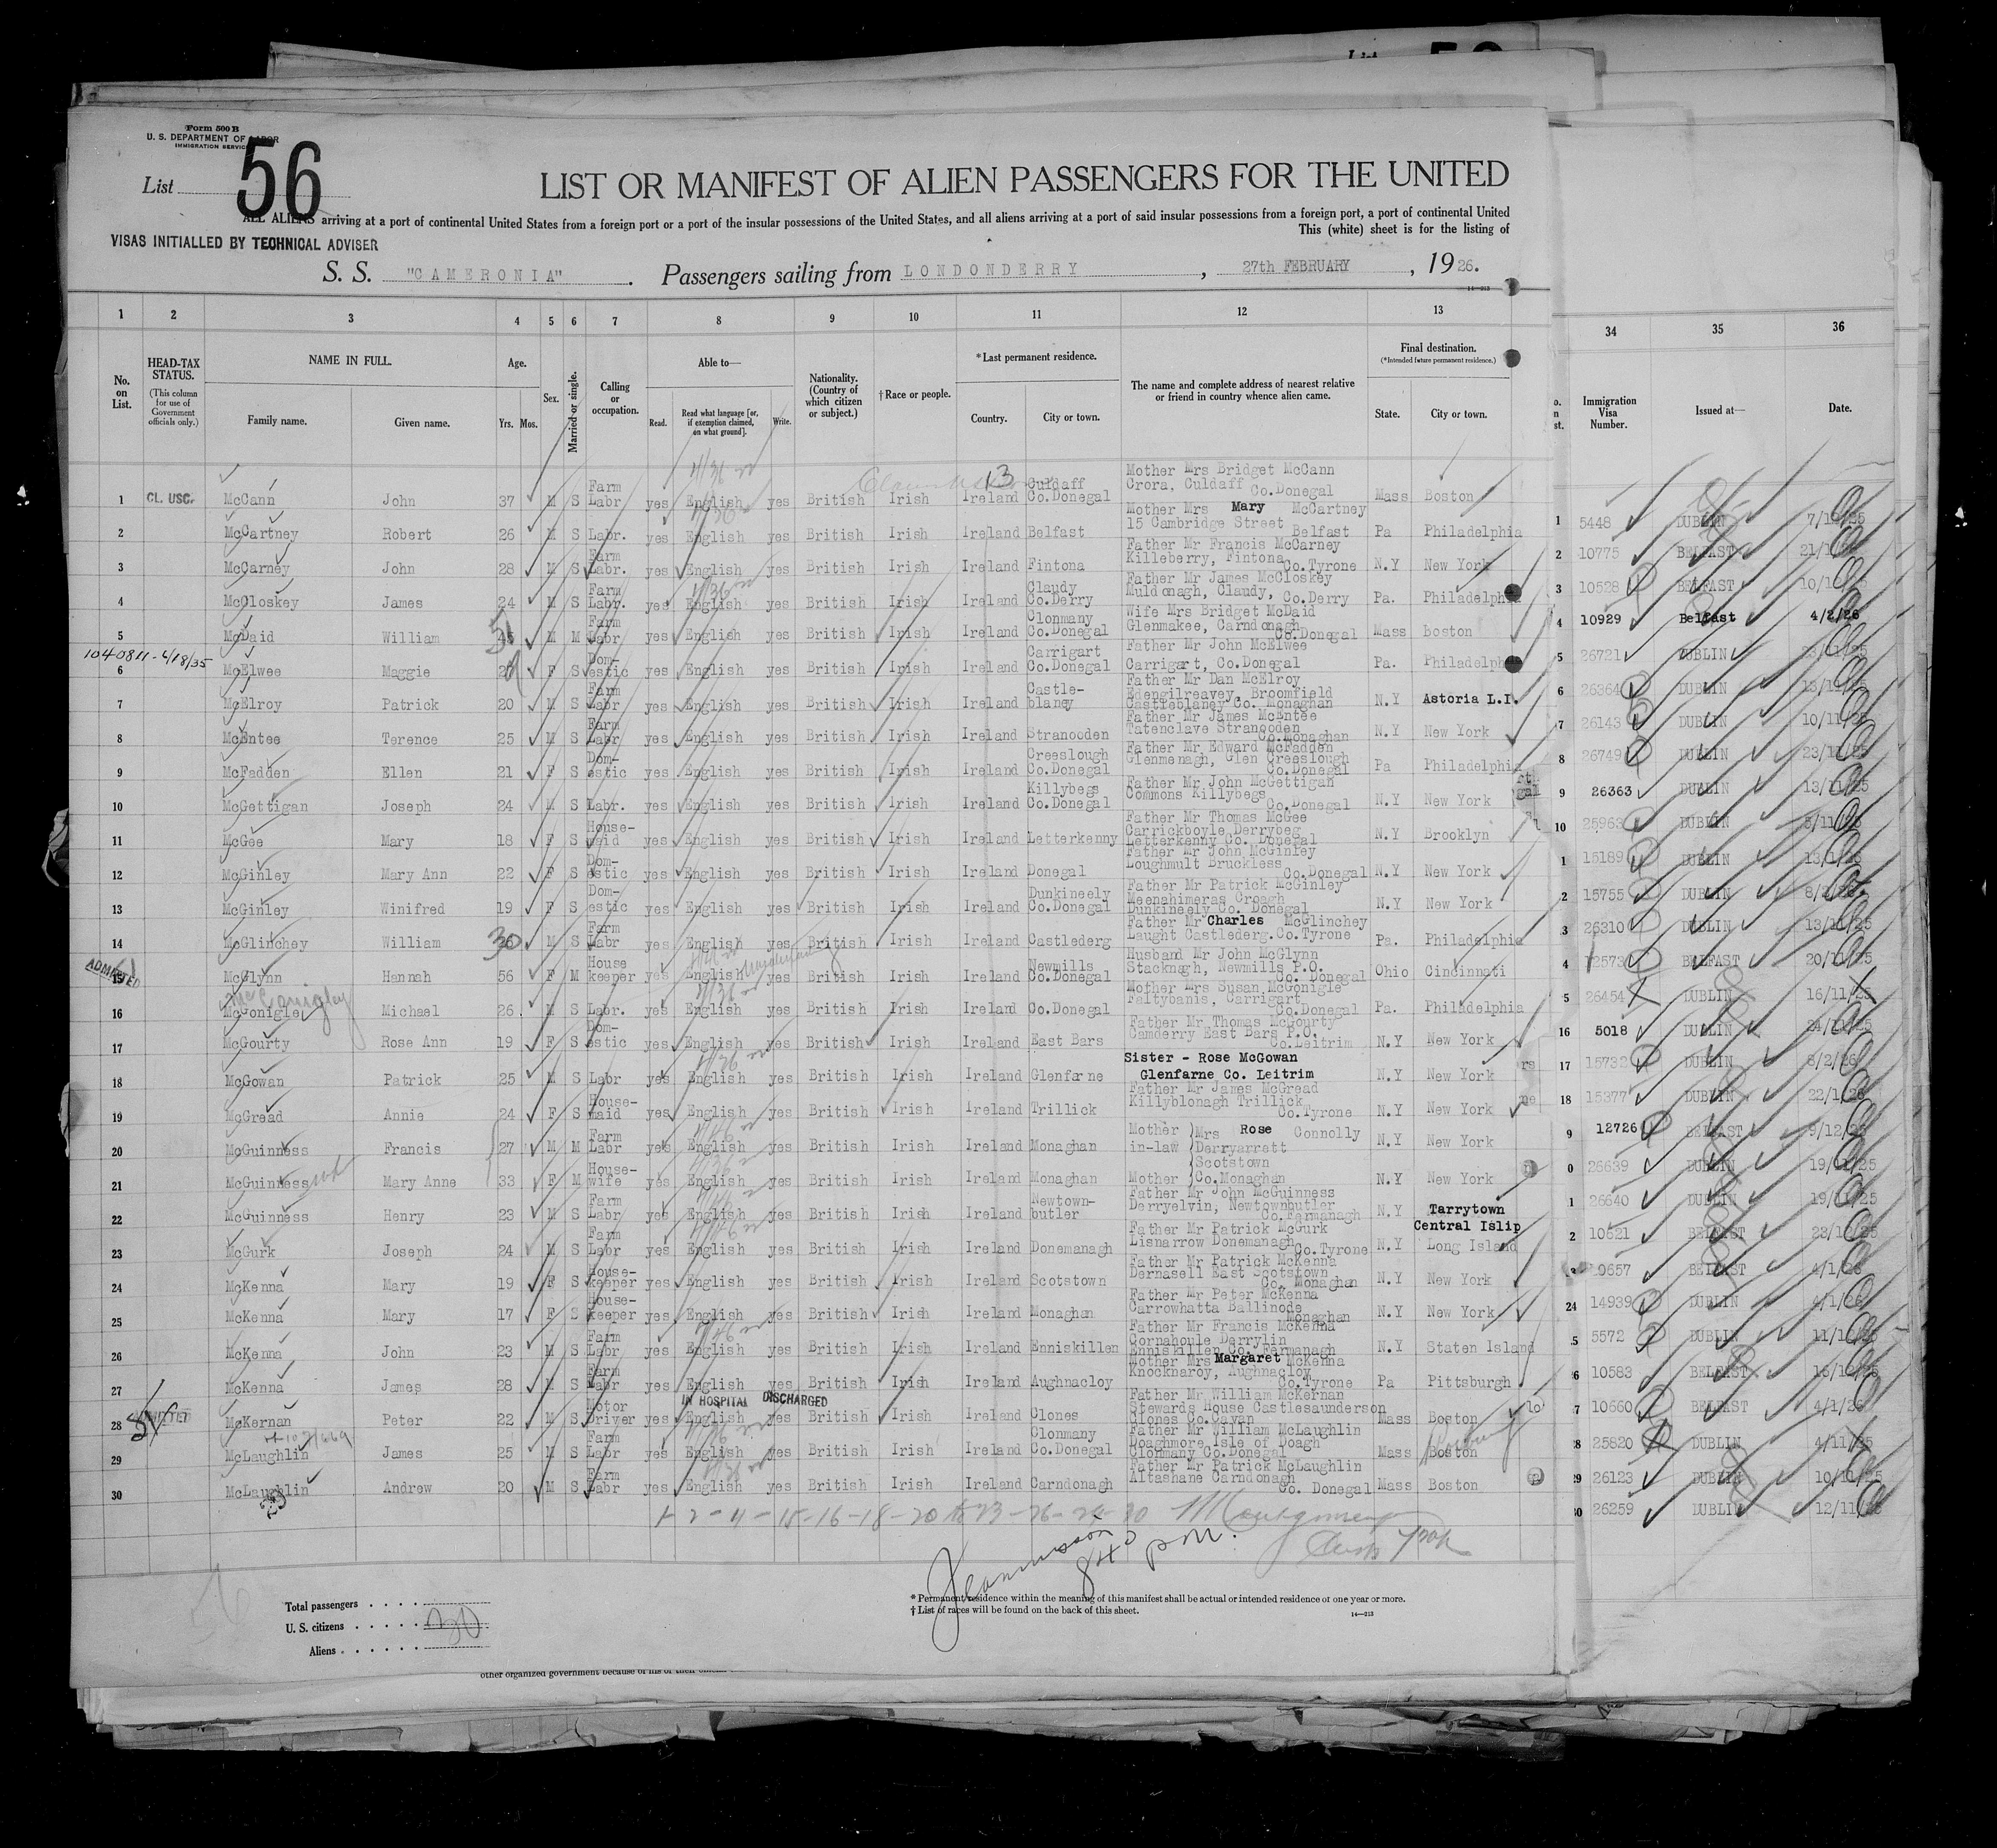 Form 500 B
U. S. DEPARTMENT OF LABOR
IMMIGRATION SERVICE
List 56
LIST OR MANIFEST OF ALIEN PASSENGERS FOR THE UNITED
ALL ALIENS arriving at a port of continental United States from a foreign port or a port of the insular possessions of the United States, and all aliens arriving at a port of said insular possessions from a foreign port, a port of continental United
This (white) sheet is for the listing of
VISAS INITIALLED BY TECHNICAL ADVISER
S. S. "CAMERONIA". Passengers sailing from LONDONDERRY, 27th FEBRUARY, 1926.
1 2 3 4 5 6 7 8 9 10 11 12 13 34 35 36
No. on List. HEAD-TAX STATUS. (This column for use of Government officials only.) NAME IN FULL. Family name. Given name. Age. Yrs. Mos. Sex. Married or single. Calling or occupation. Able to— Read. Read what language [or, if exemption claimed, on what ground]. Write. Nationality. (Country of which citizen or subject.) †Race or people. *Last permanent residence. Country. City or town. The name and complete address of nearest relative or friend in country whence alien came. Final destination. (*Intended future permanent residence.) State. City or town. Immigration Visa Number. Issued at— Date.
1 CL. USC. McCann John 37 M S Farm Labr yes English yes British Irish Ireland Culdaff Co.Donegal Mother Mrs Bridget McCann Crora, Culdaff Co.Donegal Mass Boston
2 McCartney Robert 26 M S Labr. yes English yes British Irish Ireland Belfast Mother Mrs Mary McCartney 15 Cambridge Street Belfast Pa Philadelphia
3 McCarney John 28 M S Farm Labr. yes English yes British Irish Ireland Fintona Father Mr Francis McCarney Killeberry, Fintona Co.Tyrone N.Y New York
4 McCloskey James 24 M S Farm Labr. yes English yes British Irish Ireland Claudy Co.Derry Father Mr James McCloskey Muldonagh, Claudy, Co.Derry Pa. Philadelphia
5 McDaid William 45 M M Farm Labr yes English yes British Irish Ireland Clonmany Co.Donegal Wife Mrs Bridget McDaid Glenmakee, Carndonagh Co.Donegal Mass Boston
1040811-4/18/35
6 McElwee Maggie F S Domestic yes English yes British Irish Ireland Carrigart Co.Donegal Father Mr John McElwee Carrigart, Co.Donegal Pa. Philadelphia
7 McElroy Patrick 20 M S Farm Labr yes English yes British Irish Ireland Castle-blaney Father Mr Dan McElroy Edengilreavey, Broomfield Castleblaney Co. Monaghan N.Y Astoria L.I.
8 McEntee Terence 25 M S Farm Labr yes English yes British Irish Ireland Stranooden Father Mr James McEntee Tatenclave Stranooden Co.Monaghan N.Y New York
9 McFadden Ellen 21 F S Dom-estic yes English yes British Irish Ireland Creeslough Co.Donegal Father Mr Edward McFadden Glenmenagh, Glen Creeslough Co.Donegal Pa Philadelphia
10 McGettigan Joseph 24 M S Labr. yes English yes British Irish Ireland Killybegs Co.Donegal Father Mr John McGettigan Commons Killybegs Co.Donegal N.Y New York
11 McGee Mary 18 F S House-maid yes English yes British Irish Ireland Letterkenny Father Mr Thomas McGee Carrickboyle Derrybeg Letterkenny Co. Donegal N.Y Brooklyn
12 McGinley Mary Ann 22 F S Dom-estic yes English yes British Irish Ireland Donegal Father Mr John McGinley Loughmult Bruckless Co.Donegal N.Y New York
13 McGinley Winifred 19 F S Dom-estic yes English yes British Irish Ireland Dunkineely Co.Donegal Father Mr Patrick McGinley Meenahimeras Croagh Dunkineely Co. Donegal N.Y New York
14 McGlinchey William 30 M S Farm Labr yes English yes British Irish Ireland Castlederg Father Mr Charles McGlinchey Laught Castlederg.Co.Tyrone Pa. Philadelphia
ADMITTED
15 McGlynn Hannah 56 F M House keeper yes English yes British Irish Ireland Newmills Co.Donegal Husband Mr John McGlynn Stacknagh, Newmills P.O. Co. Donegal Ohio Cincinnati
McGonigley
16 McGonigle Michael 26 M S Labr. yes English yes British Irish Ireland Co.Donegal Mother Mrs Susan McGonigle Faltybanis, Carrigart Co.Donegal Pa. Philadelphia
17 McGourty Rose Ann 19 F S Dom-estic yes English yes British Irish Ireland East Bars Father Mr Thomas McGourty Camderry East Bars P.O. Co.Leitrim N.Y New York
18 McGowan Patrick 25 M S Labr yes English yes British Irish Ireland Glenfarne Sister - Rose McGowan Glenfarne Co. Leitrim N.Y New York
19 McGread Annie 24 F S House-maid yes English yes British Irish Ireland Trillick Father Mr James McGread Killyblonagh Trillick Co.Tyrone N.Y New York
20 McGuinness Francis 27 M M Farm Labr yes English yes British Irish Ireland Monaghan Mother in-law Mrs Rose Connolly Derryarrett N.Y New York
21 McGuinness wife Mary Anne 33 F M House-wife yes English yes British Irish Ireland Monaghan Mother Scotstown Co.Monaghan N.Y New York
22 McGuinness Henry 23 M S Farm Labr yes English yes British Irish Ireland Newtown-butler Father Mr John McGuinness Derryelvin, Newtownbutler Co.Fermanagh N.Y Tarrytown
23 McGurk Joseph 24 M S Farm Labr yes English yes British Irish Ireland Donemanagh Father Mr Patrick McGurk Lisnarrow Donemanagh Co.Tyrone N.Y Central Islip Long Island
24 McKenna Mary 19 F S House-keeper yes English yes British Irish Ireland Scotstown Father Mr Patrick McKenna Dernasell East Scotstown Co. Monaghan N.Y New York
25 McKenna Mary 17 F S House-keeper yes English yes British Irish Ireland Monaghan Father Mr Peter McKenna Carrowhatta Ballinode Monaghan N.Y New York
26 McKenna John 23 M S Farm Labr yes English yes British Irish Ireland Enniskillen Father Mr Francis McKenna Cornahoule Derrylin Enniskillen Co. Fermanagh N.Y Staten Island
27 McKenna James 28 M S Farm Labr yes English yes British Irish Ireland Aughnacloy Mother Mrs Margaret McKenna Knocknaroy, Aughnacloy Co.Tyrone Pa Pittsburgh
IN HOSPITAL DISCHARGED
28 McKernan Peter 22 M S Motor Driver yes English yes British Irish Ireland Clones Father Mr William McKernan Stewards House Castlesaunderson Clones Co.Cavan Mass Boston
29 McLaughlin James 25 M S Farm Labr yes English yes British Irish Ireland Clonmany Co.Donegal Father Mr William McLaughlin Doaghmore Isle of Doagh Clonmany Co.Donegal Mass Boston
30 McLaughlin Andrew 20 M S Farm Labr yes English yes British Irish Ireland Carndonagh Father Mr Patrick McLaughlin Altashane Carndonagh Co. Donegal Mass Boston
1 5448 DUBLIN
2 10775 BELFAST
3 10528 BELFAST
4 10929 Belfast 4/2/26
5 26721 DUBLIN
6 26364 DUBLIN 13/11/25
7 26143 DUBLIN 10/11/25
8 26749 DUBLIN 23/11/25
9 26363 DUBLIN 13/11/25
10 25963 DUBLIN
1 15189 DUBLIN
2 15755 DUBLIN
3 26310 DUBLIN 13/11/25
4 12573 BELFAST 20/11/25
5 26454 DUBLIN 16/11/25
16 5018 DUBLIN
17 15732 DUBLIN 8/2/26
18 15377 DUBLIN 22/1/26
9 12726 BELFAST 9/12/25
0 26639 DUBLIN 19/11/25
1 26640 DUBLIN 19/11/25
2 10621 BELFAST 23/12/25
0657 BELFAST 4/1/26
24 14939 DUBLIN 4/1/26
5 5572 DUBLIN
6 10583 BELFAST
7 10660 BELFAST 4/1/26
8 25820 DUBLIN 4/11/25
29 26123 DUBLIN 10/11/25
30 26259 DUBLIN 12/11/25
Total passengers
U. S. citizens 30
Aliens
* Permanent residence within the meaning of this manifest shall be actual or intended residence of one year or more.
† List of races will be found on the back of this sheet.
14—213